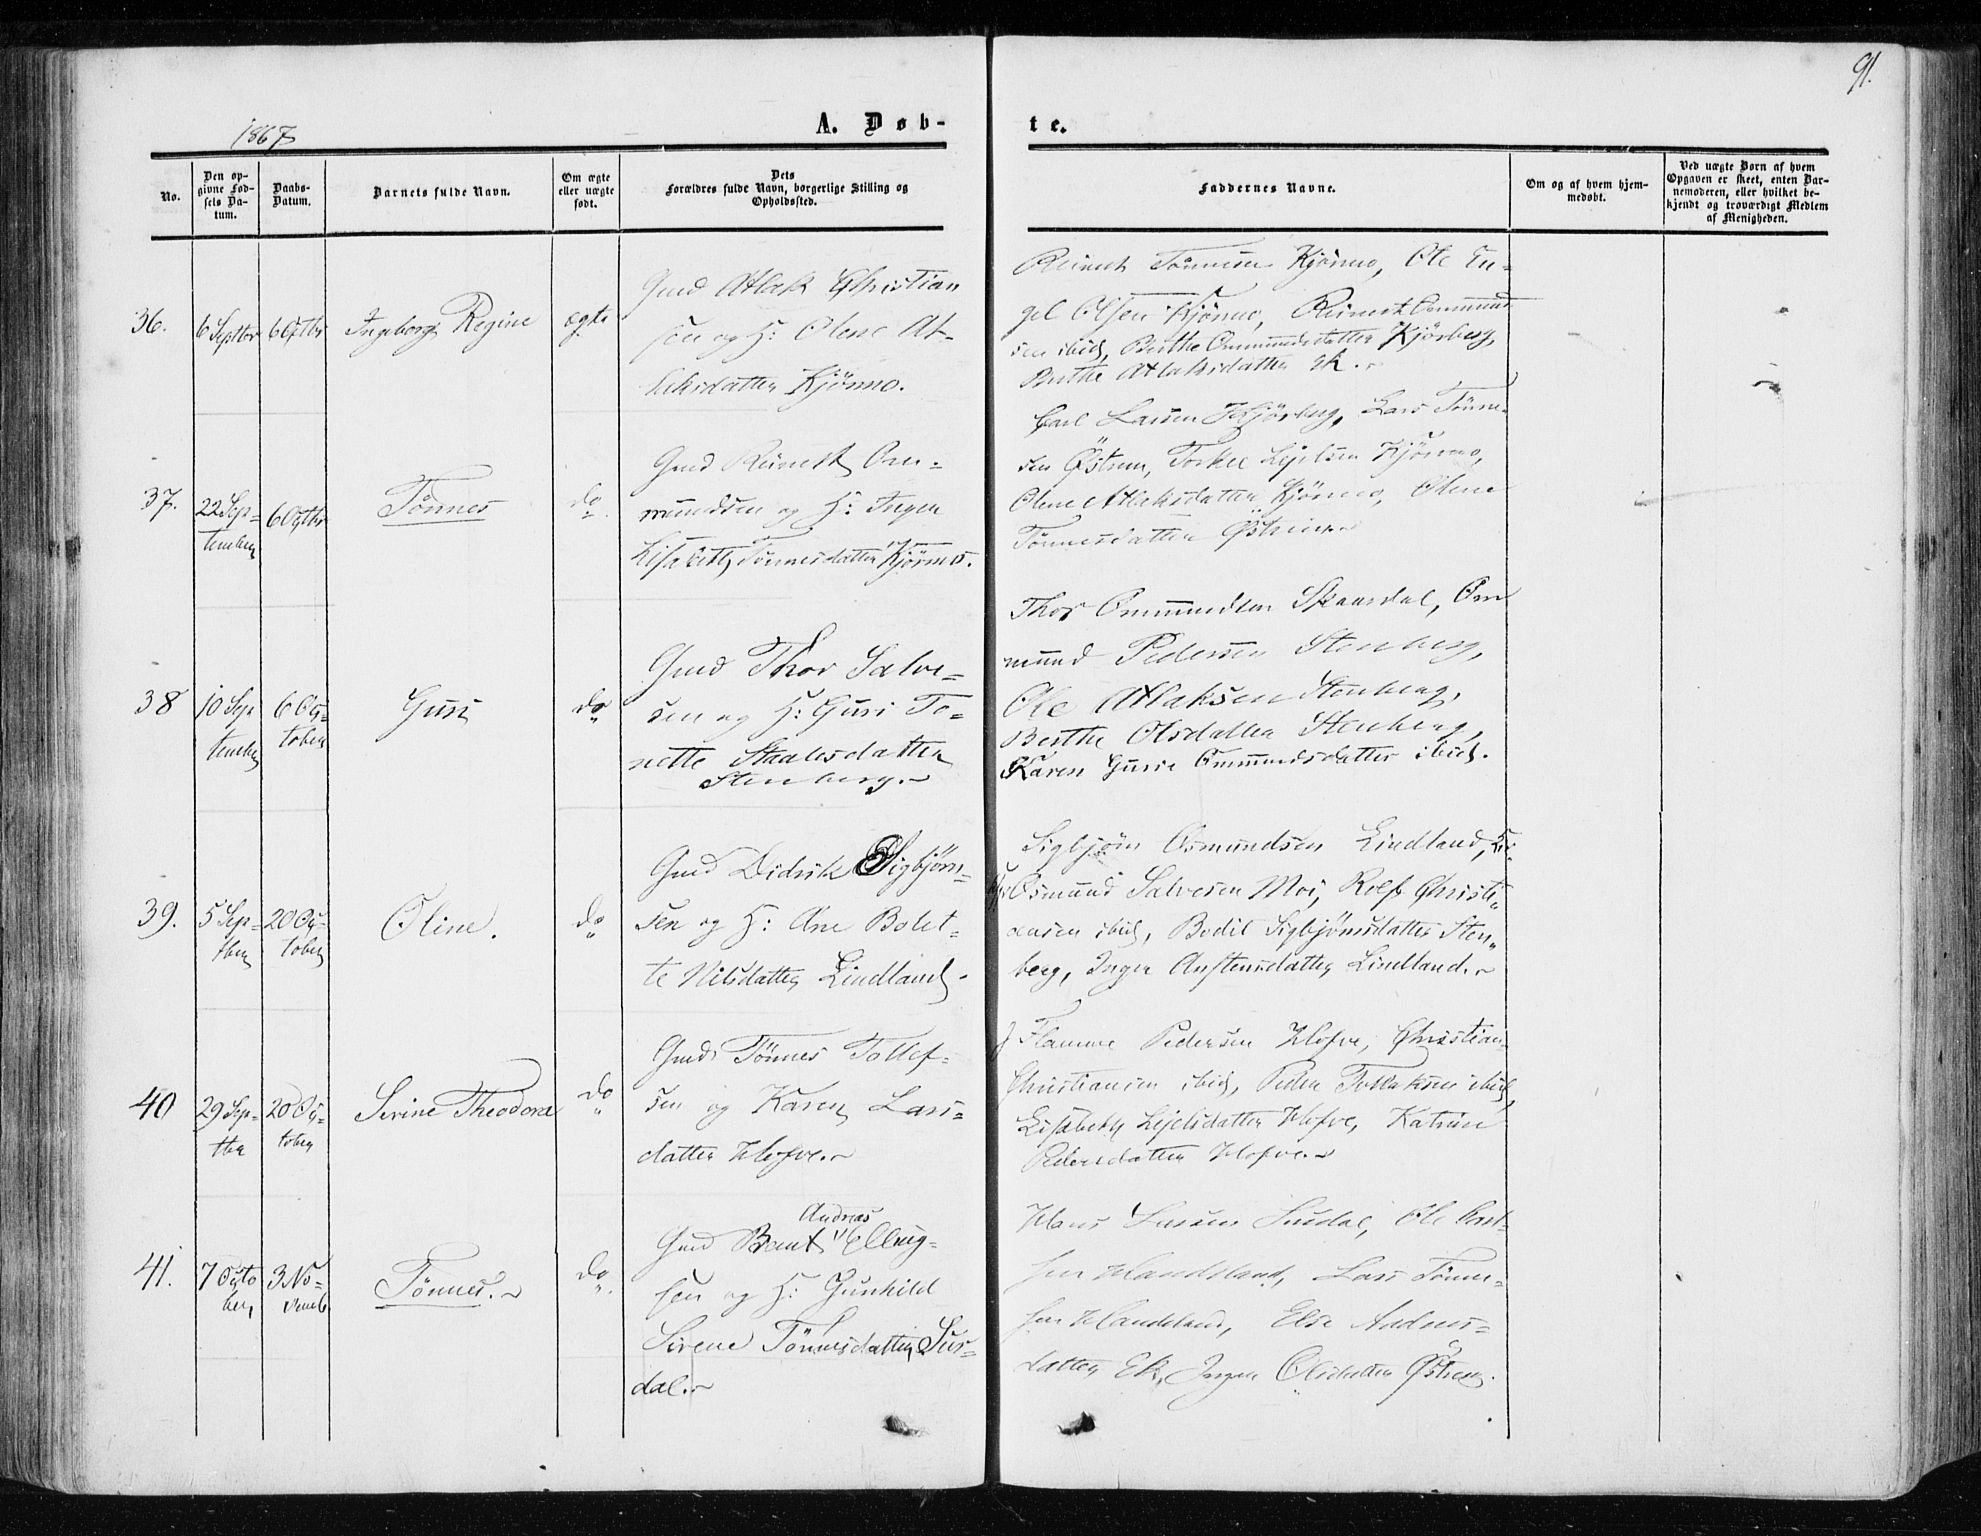 91.
1867
A. Døb-
te.
No.
Den op-
givne Fød-
sels Da-
tum.
Daabs-
Datum.
Barnets fulde Navn.
Om ægte
eller uægte
født.
Dets
Forældres fulde Navn, borgerlige Stilling og
Opholdssted.
Faddernes Navne.
Om og af hvem hjem-
medøbt.
Ved uægte Børn af hvem
Opgaven er skeet, enten Bar-
nemoderen, eller hvilket be-
kjendt og troværdigt Medlem
af Menigheden.
36.
6 Septbr
6 Octbr
Ingeborg Regine
ægte
Gmd Atlak Christian
sen og H: Olene At-
laksdatter Kjørmo.
Reinert Tønnesen Kjørmo, Ole En-
gel Olsen Kjørmo, Reinert Ommund-
sen ibid, Berthe Ommundsdatter Kjørberg,
Berthe Atlaksdatter Ek.
37.
22 Sep-
tember
6 Octbr
Tønnes
do
Gmd Reinert Om-
mundsen og H: Inger
Lisabeth Tønnesdatter Kjørmo.
Carl Larsen Kjørberg, Lars Tønne-
sen Østrem, Torkel Lejelsen Kjørmo,
Olene Atlaksdatter Kjørmo, Olene
Tønnesdatter Østrem
38
10 Sep
tember
6 Oc-
tober
Guri
do
Gmd Thor Salve-
sen og H: Guri To-
nette Staalesdatter
Stenberg.
Thor Ommundsen Skaardal, Om
mund Pedersen Stenberg,
Ole Atlaksen Stenberg,
Berthe Olsdatter Stenberg,
Karen Gurie Ommundsdatter ibid.
39.
5 Sep-
tber
20 Oc-
tober
Oline.
do
Gmd Didrik Sigbjørn-
sen og H: Ane Bolet-
te Nilsdatter Lindland.
Sigbjørn Osmundsen Lindland,
Osmund Salvesen Moi, Rolf Christi-
ansen ibid, Bodil Sigbjørnsdatter Sten-
berg, Inger Austensdatter Lindland.
40
29 Sep-
tbr
20 Oc-
tober
Serine Theodora
do
Gmd Tønnes Tollef-
sen og Karen Lars-
datter Hofve.
Flamme Pedersen Hofve, Christian
Christiansen ibid, Peder Tollaksen ibid,
Lisabeth Lejelsdatter Hofve, Katrine
Pedersdatter Hofve.
41.
7 Octo
ber
3 No-
vemb
Tønnes.
do
Andreas
Gmd Bent Elling-
sen og H: Gunhild
Sirene Tønnesdatter Sus-
dal.
Hans Larsen Susdal, Ole
sen Handeland, Lars Tønnes-
sen Handeland, Else Andreas-
datter Ek, Inger Olsdatter Østrem.